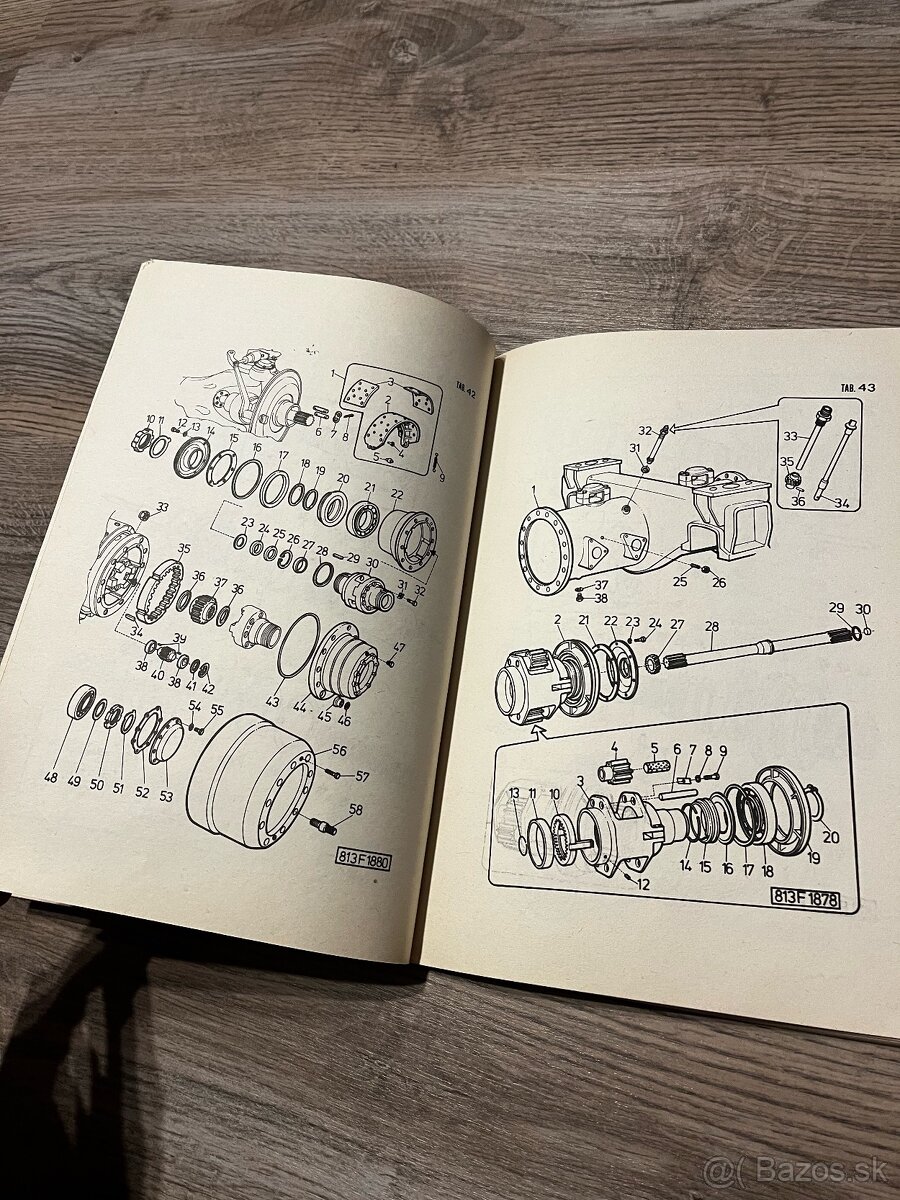 TAB. 42
1
3
2
6 7 8
4
5
9
10 11 12 13 14 15 16 17 18 19 20 21 22
23 24 25 26 27 28 29 30 31 32
33
35 36 37 36
34
38 39 40 38 41 42
43 44 45 46
47
48 49 50 51 52 53
54 55
56
57
58
813F1880
TAB. 43
32
33
31
35
36
34
1
25 26
37
38
2 21 22 23 24
27 28 29 30
4 5 6 7 8 9
13 11 10 3
14 15 16 17 18 19 20
12
813F1878
@( Bazos.sk